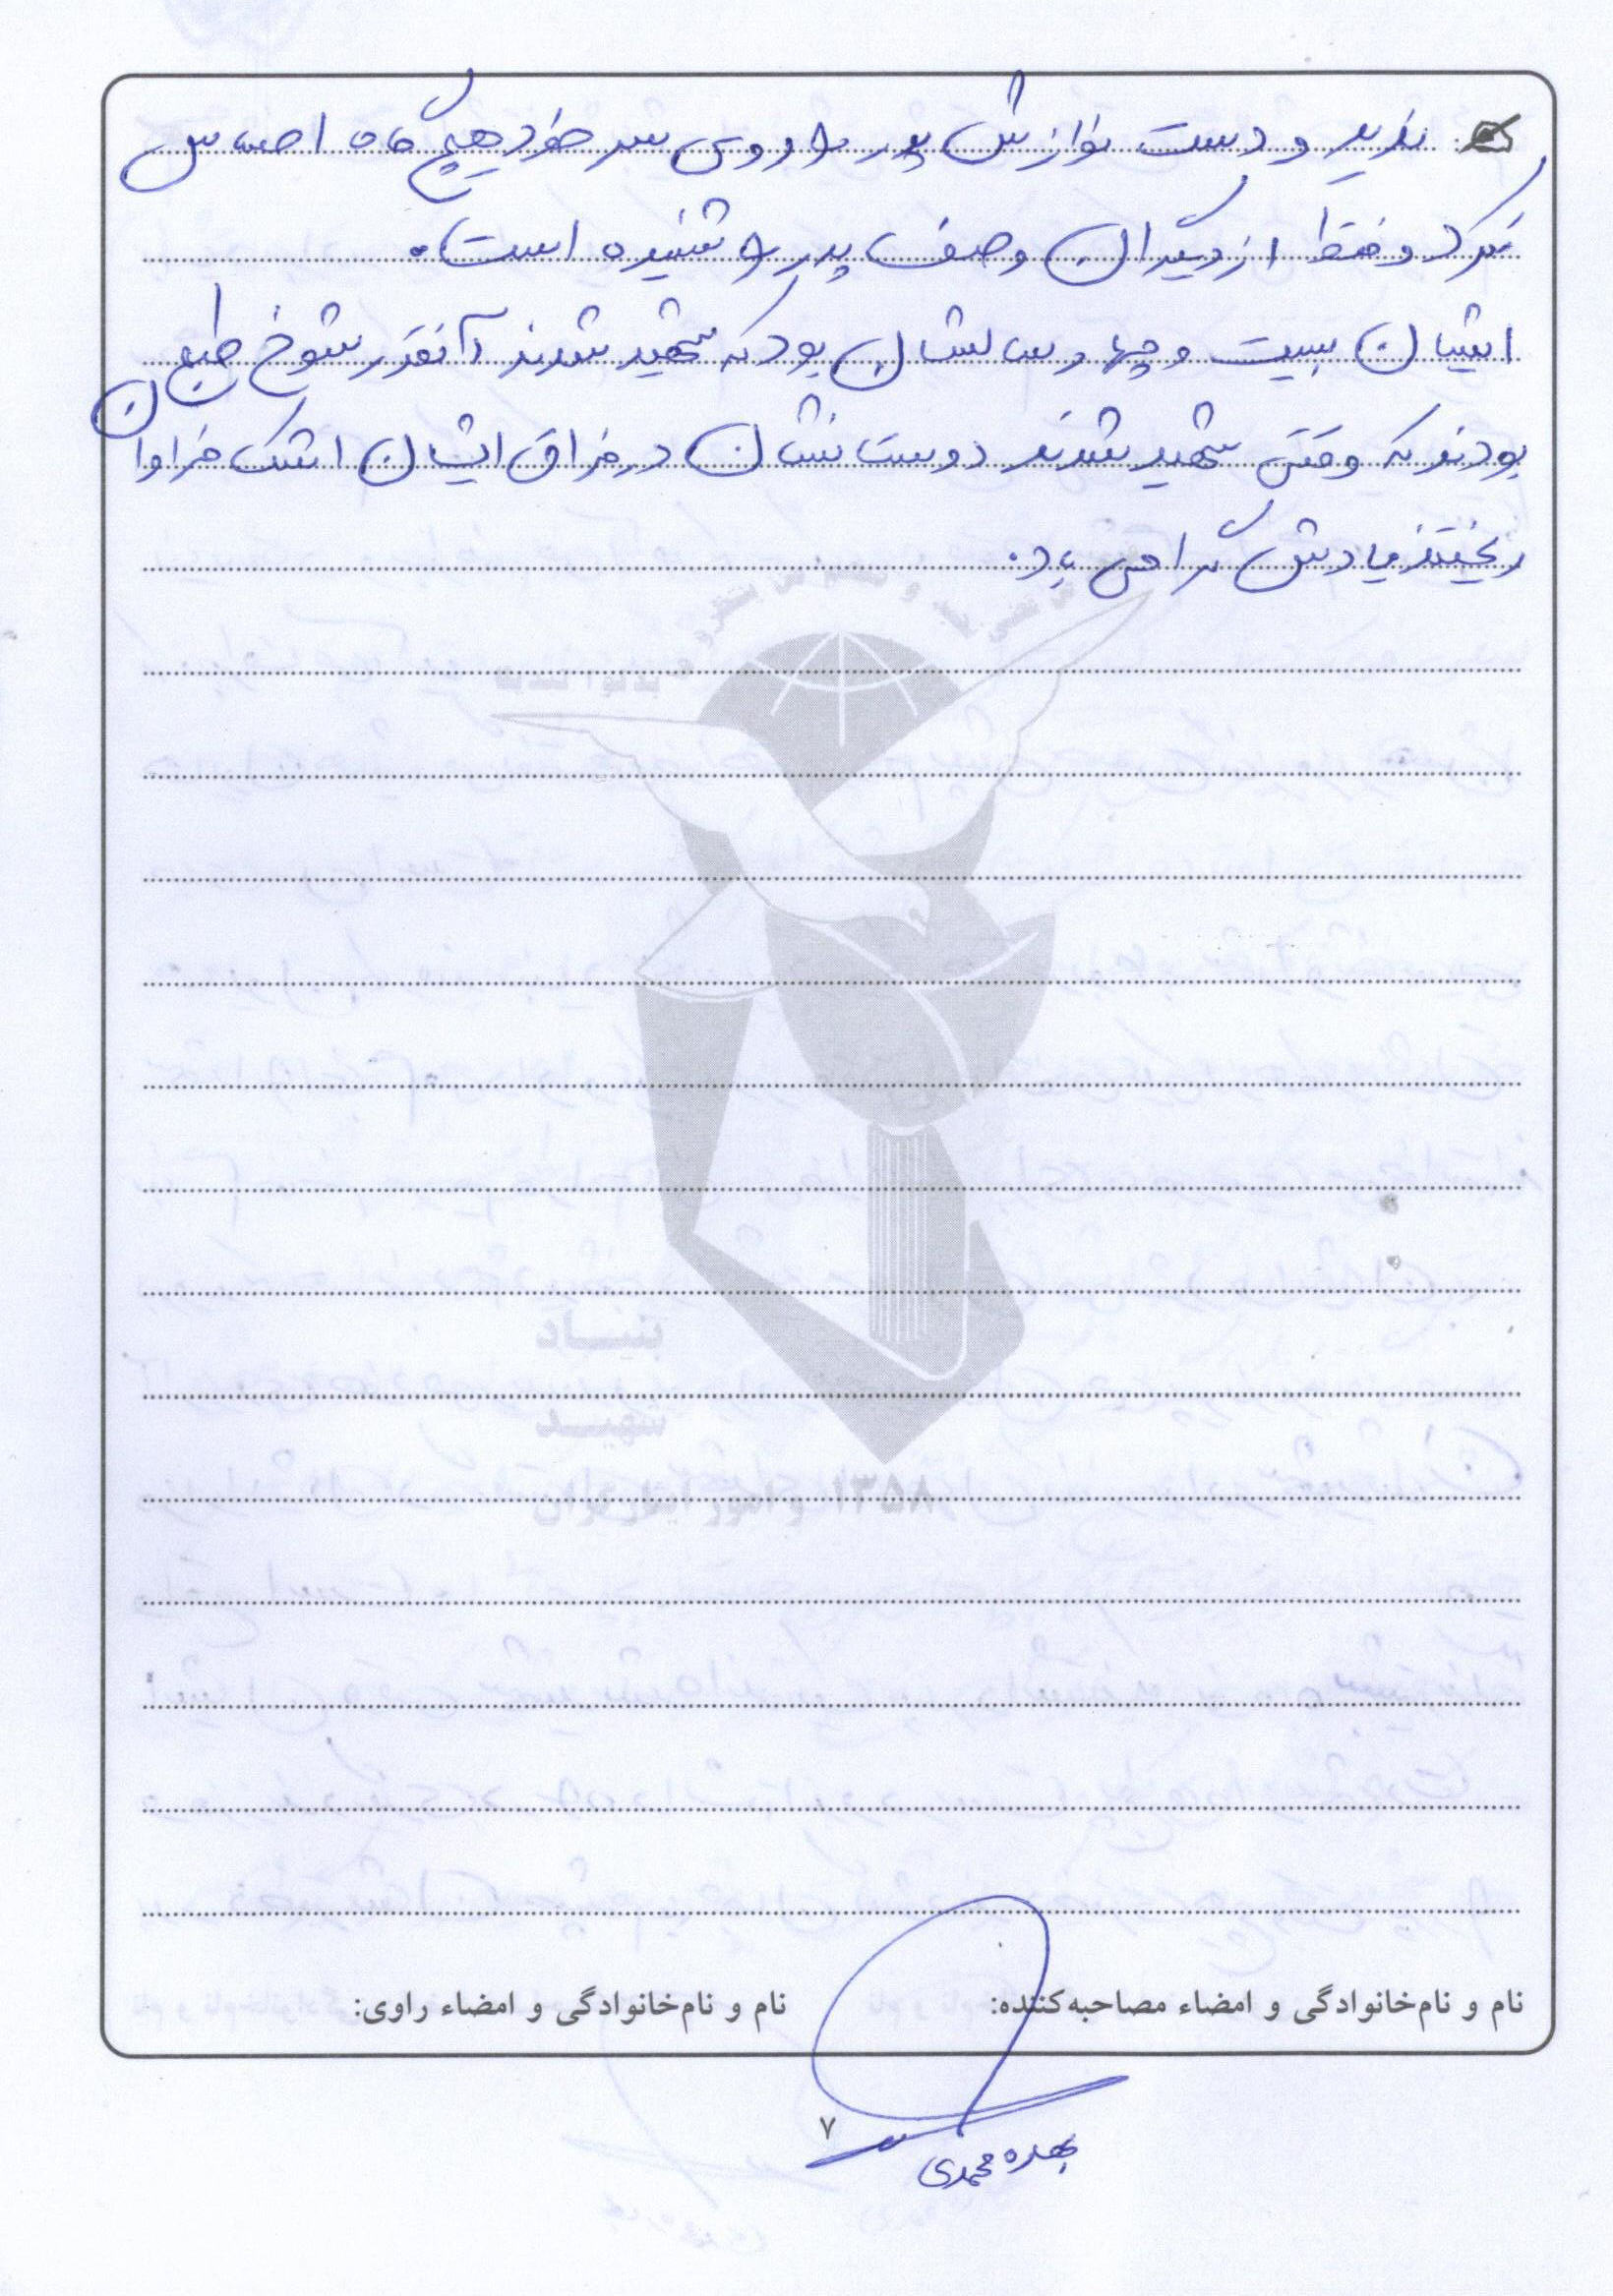 ندید و دست نوازش پدر را روی سر خود هیچ گاه احساس
نکرد و فقط از دیگران وصف پدر را شنیده است.
ایشان بیست و چهار سالشان بود که شهید شدند آنقدر شوخ طبع
بودند که وقتی شهید شدند دوستانشان در فراق ایشان اشک فراوان
ریختند یادش گرامی باد.
بنیاد
شهید
و امور ایثارگران ۱۳۵۸
نام و نام‌خانوادگی و امضاء مصاحبه‌کننده:
نام و نام‌خانوادگی و امضاء راوی:
۷
محمدی